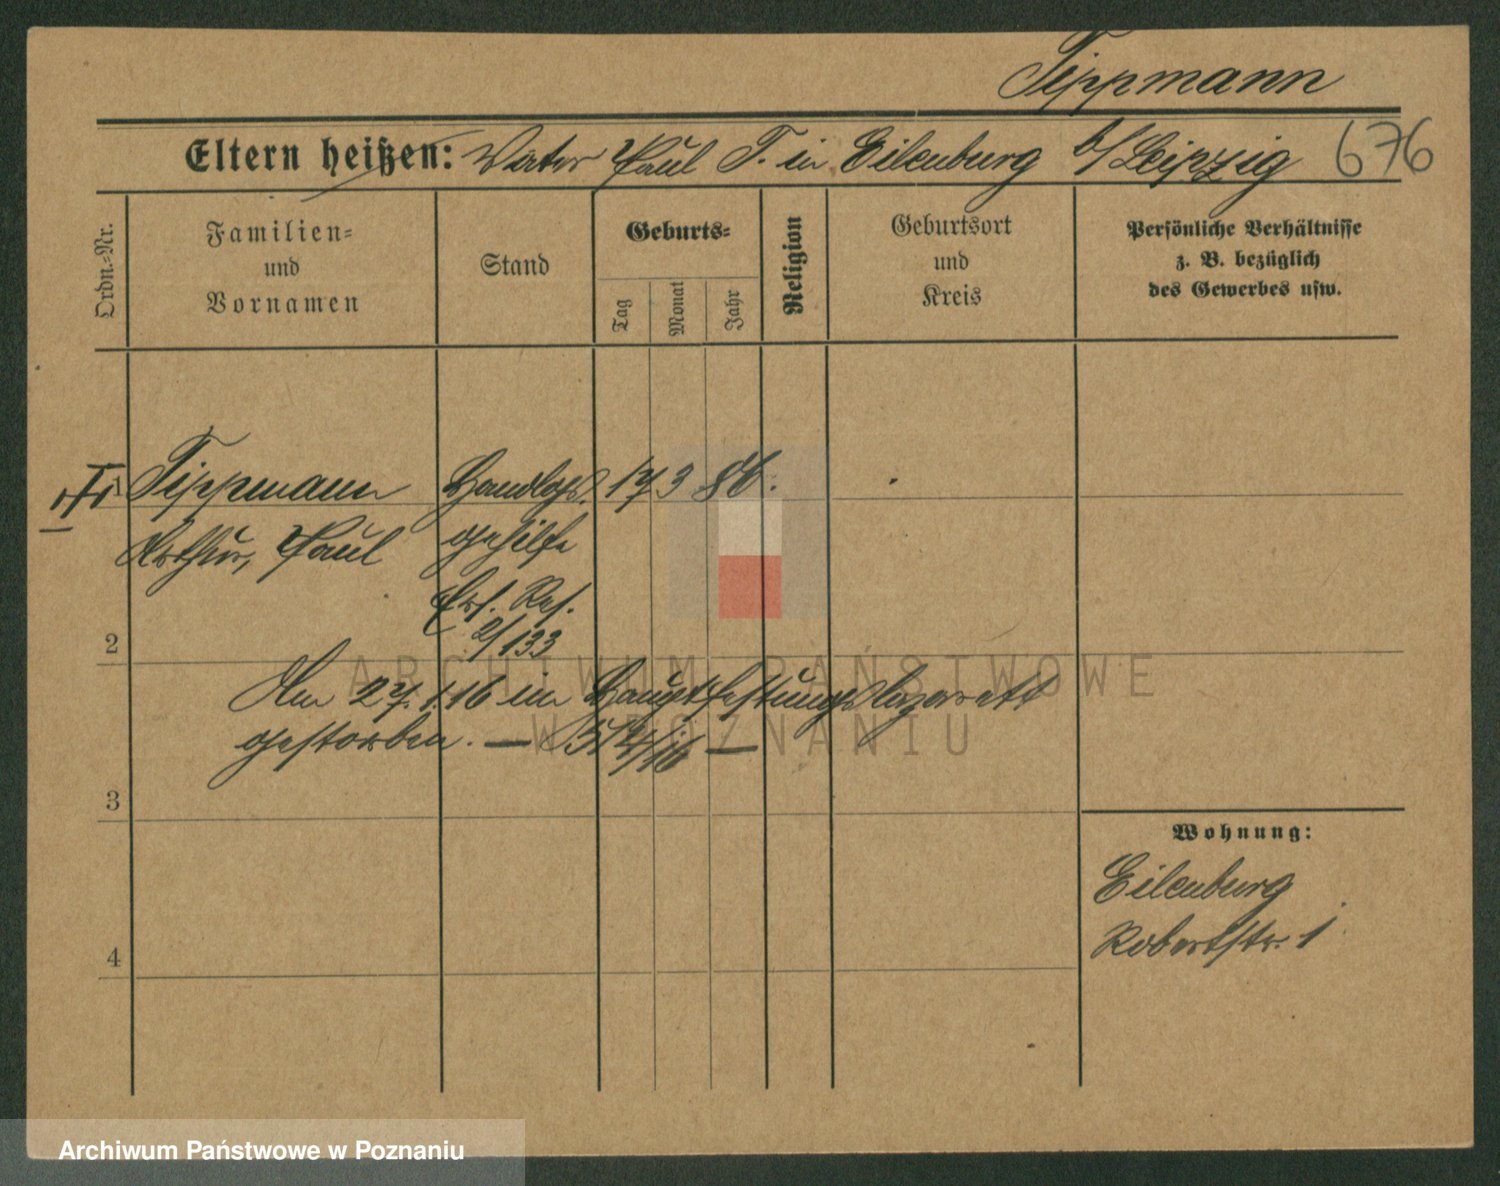 Tippmann
Eltern heißen: Vater Paul T. in Eilenburg b/Leipzig 676
Ordn.-Nr.
Familien-
und
Vornamen
Stand
Geburts-
Tag
Monat
Jahr
Religion
Geburtsort
und
Kreis
Persönliche Verhältnisse
z. B. bezüglich
des Gewerbes usw.
1 Tippmann Handlgs. 17 3 86.
Arthur, Paul gehilfe
Ers. Res.
2/133
2
Am 27.1.16 im Hauptfestungslazarett
gestorben. —
3
Wohnung:
Eilenburg
Robertstr. 1
4
ARCHIWUM PAŃSTWOWE
W POZNANIU
Archiwum Państwowe w Poznaniu